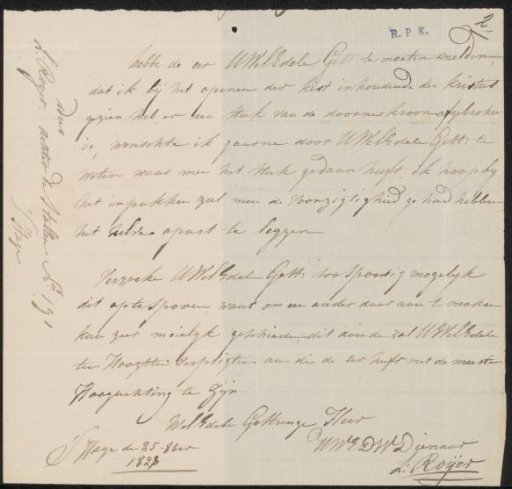 R. P. K.
hebbe de eer UWelEdele Gest. te moeten melden
dat ik by het openen der kist inhoudende de Kristus
gezien heb er een stuk van de doorne kroon afgebroken
is, wenschte ik gaarne door UWelEdele Gest. te
weten waar men het stuk gedaan heeft ik hoop by
het inpakken zal men de voorzigtigheid gehad hebben
het zelve apart te leggen
Verzoeke UWelEdele Gest. zoo spoedig mogelyk
dit op te sporen, want om een ander daar aan te maken
kan zeer moielyk geschieden dit doende zal UWelEdele
ten Hoogsten verpligten aan die de eer heeft met de meeste
Hoogachting te zyn
WelEdele Gestrenge Heer
UWEDW Dienaar
L. Royer
S Hage de 25 8ber
1823
adres
L. Royer agter de
No. 191
S Hage